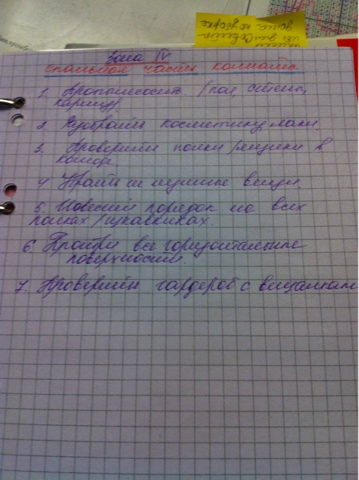 Зона IV
спальная часть комнаты
1. Пропылесосить /пол стены,
карниз/
2. Разобрать косметику, лаки.
3. Проверить полки /ящики в
комоде.
4 Найти не нужные вещи.
5 Навести порядок на всех
полках /шкафчиках.
6 Протереть все горизонтальные
поверхности.
7. Проверить гардероб с вещами